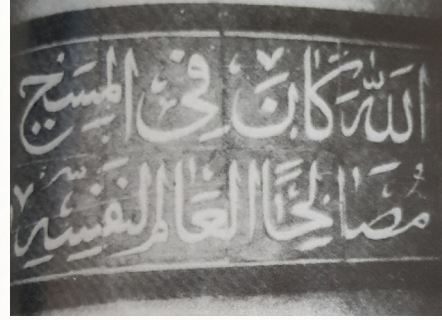 اللهَ كَانَ فِي المَسِيحِ
مُصَالِحًا العَالمَ لنَفْسِهِ